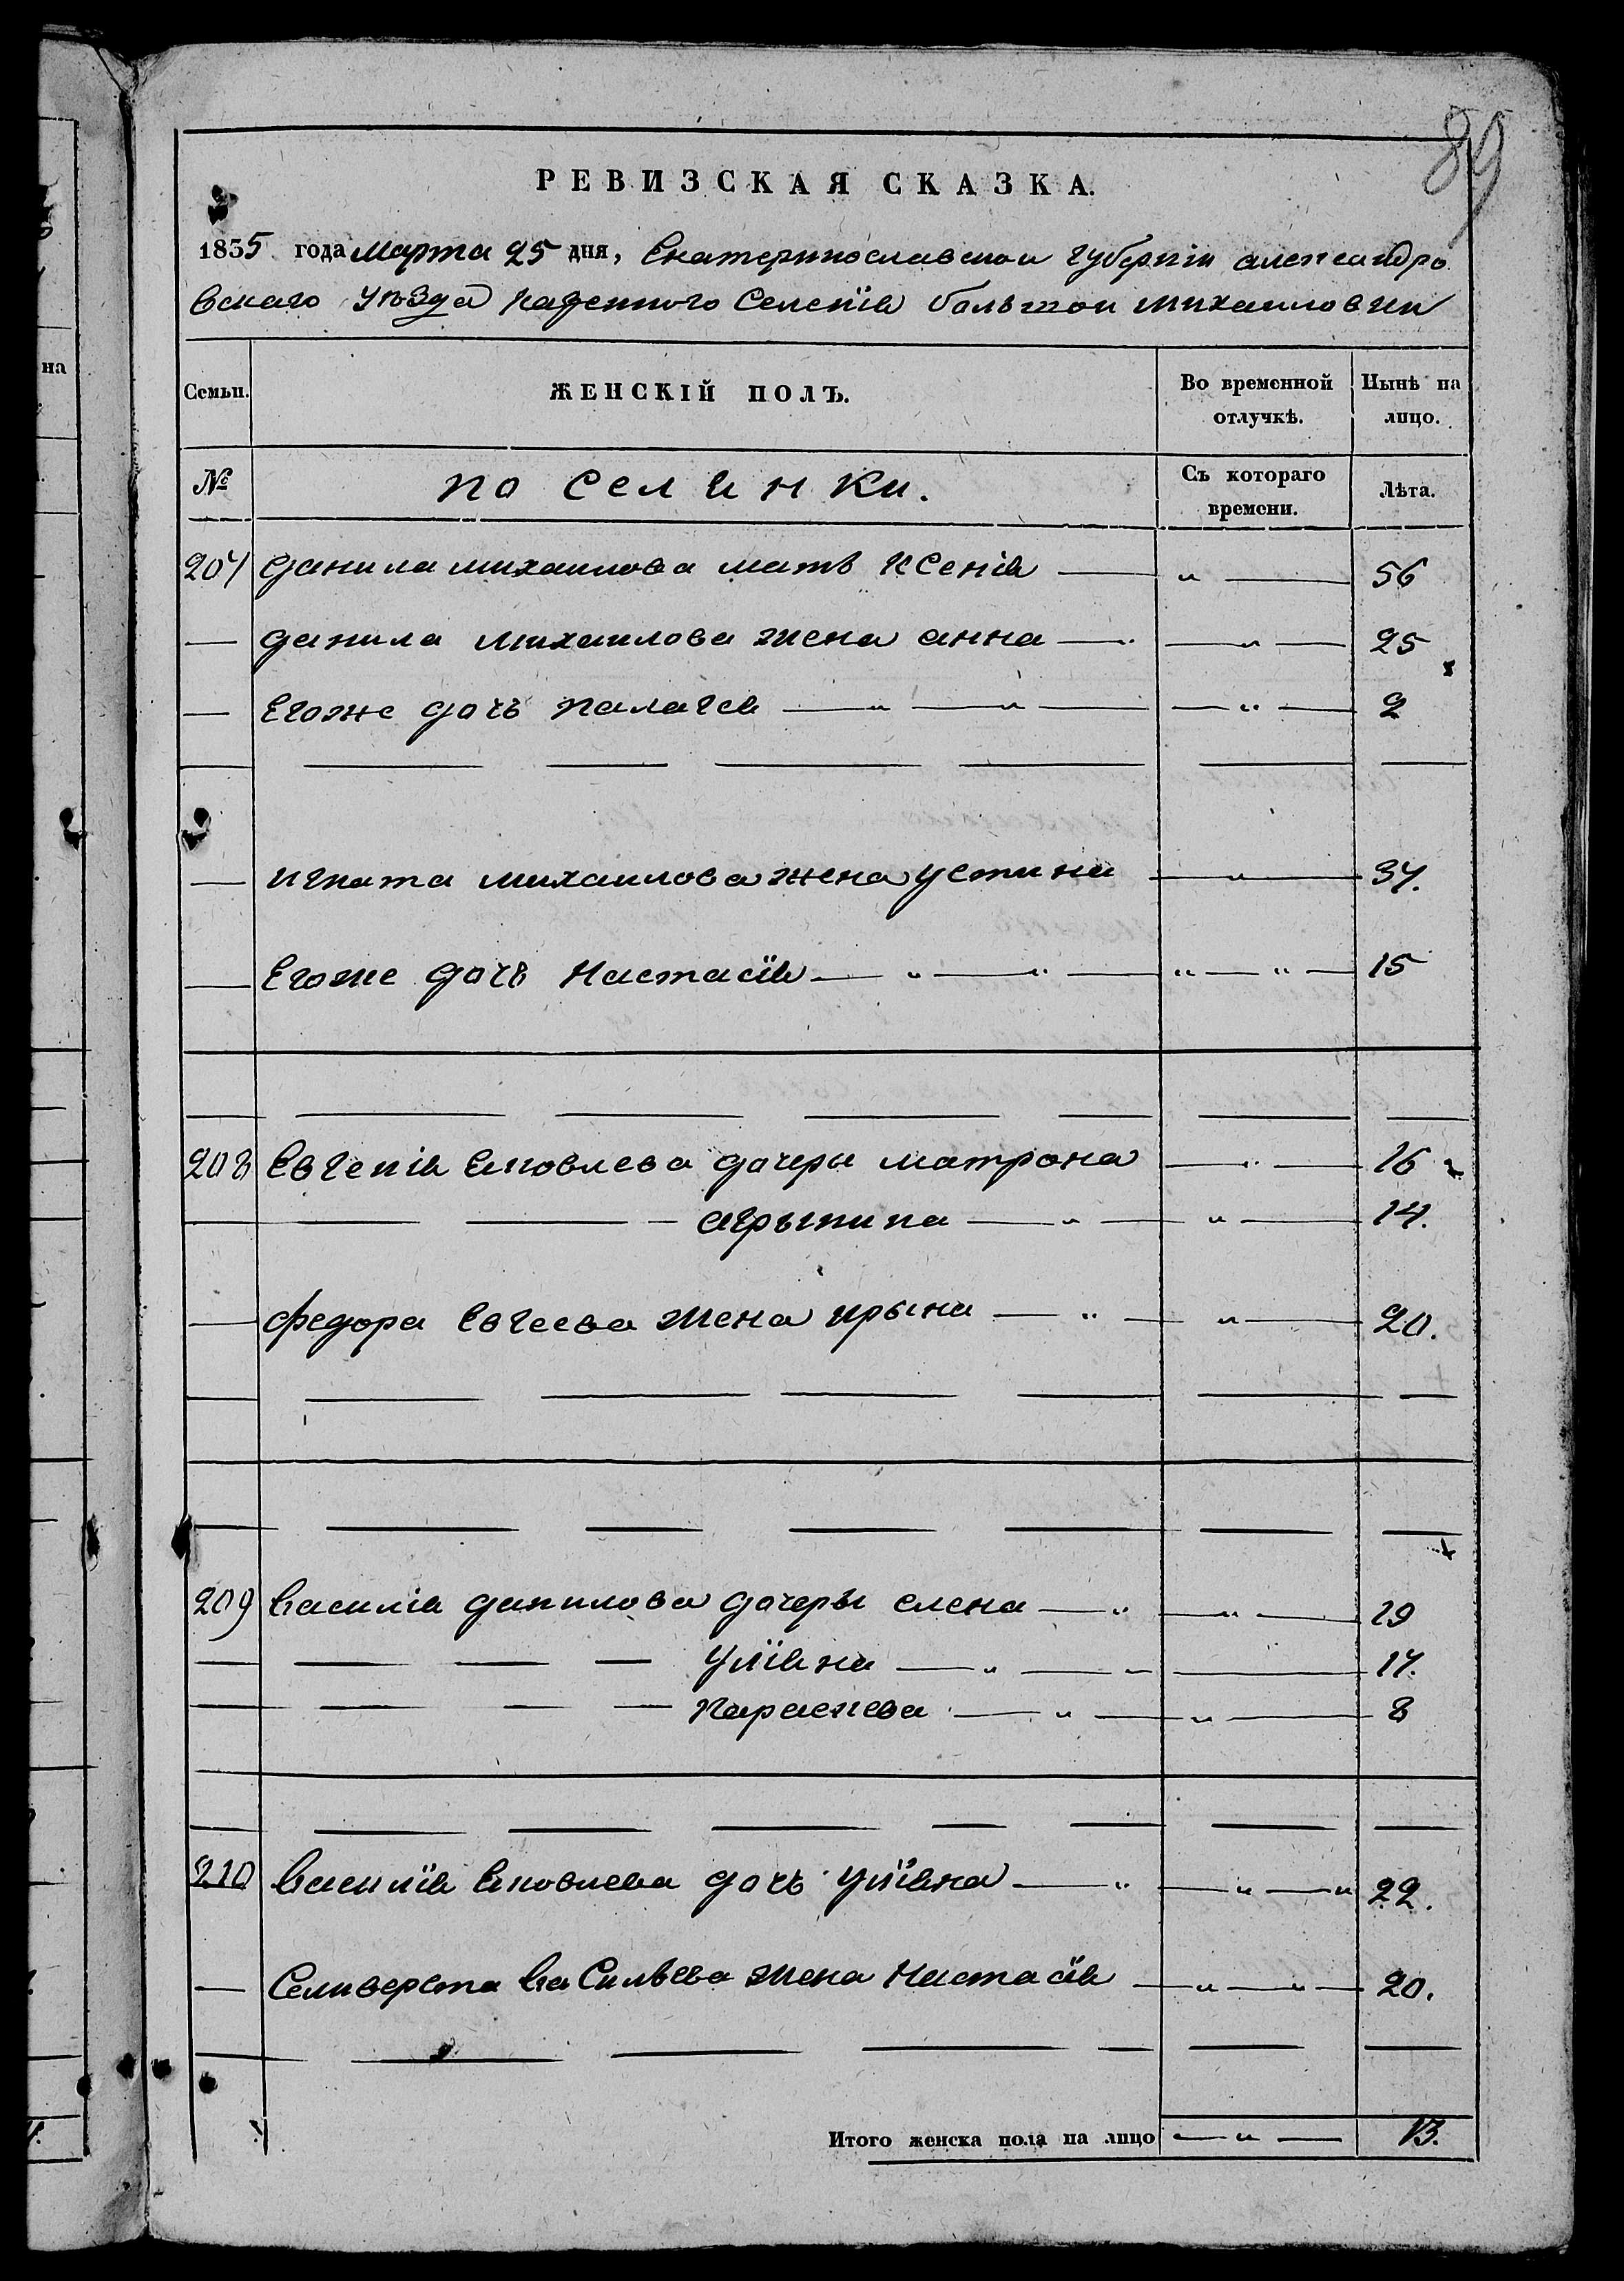 89
РЕВИЗСКАЯ СКАЗКА.
1835 года марта 25 дня, Екатеринославской губерніи александро
вскаго уѣзда казенного Селенія большой михаиловки
Семьи. ЖЕНСКІЙ ПОЛЪ. Во временной отлучкѣ. Нынѣ на лицо.
№ поселянки. Съ котораго времени. Лѣта.
207 данила михаилова мать ксенія — „ — 56
— данила михаилова жена анна — „ — 25
— Егоже дочь палагея — „ — „ — „ — 2
— игната михаилова жена устина — „ — 37.
— Егоже дочь настасія — „ — „ — „ — „ — 15
208 Евгенія Яковлева дочеры матрона — „ — 16
— — — агрыпина — „ — „ — 14.
— федора Евгеева жена ирына — „ — „ — 20.
209 василія данилова дочеры елена — „ — „ — 19
— — — уліяна — „ — 17.
— — — параскева — „ — „ — 8
210 василія Яковлева дочь уліяна — „ — „ — „ 22.
— Селиверста васильева жена настасія — „ — „ — 20.
Итого женска пола на лицо — „ — 13.
на